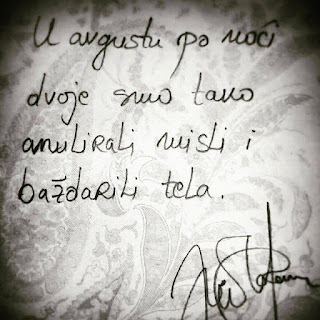 U avgustu po noći
dvoje smo tako
anulirali misli i
baždarili tela.